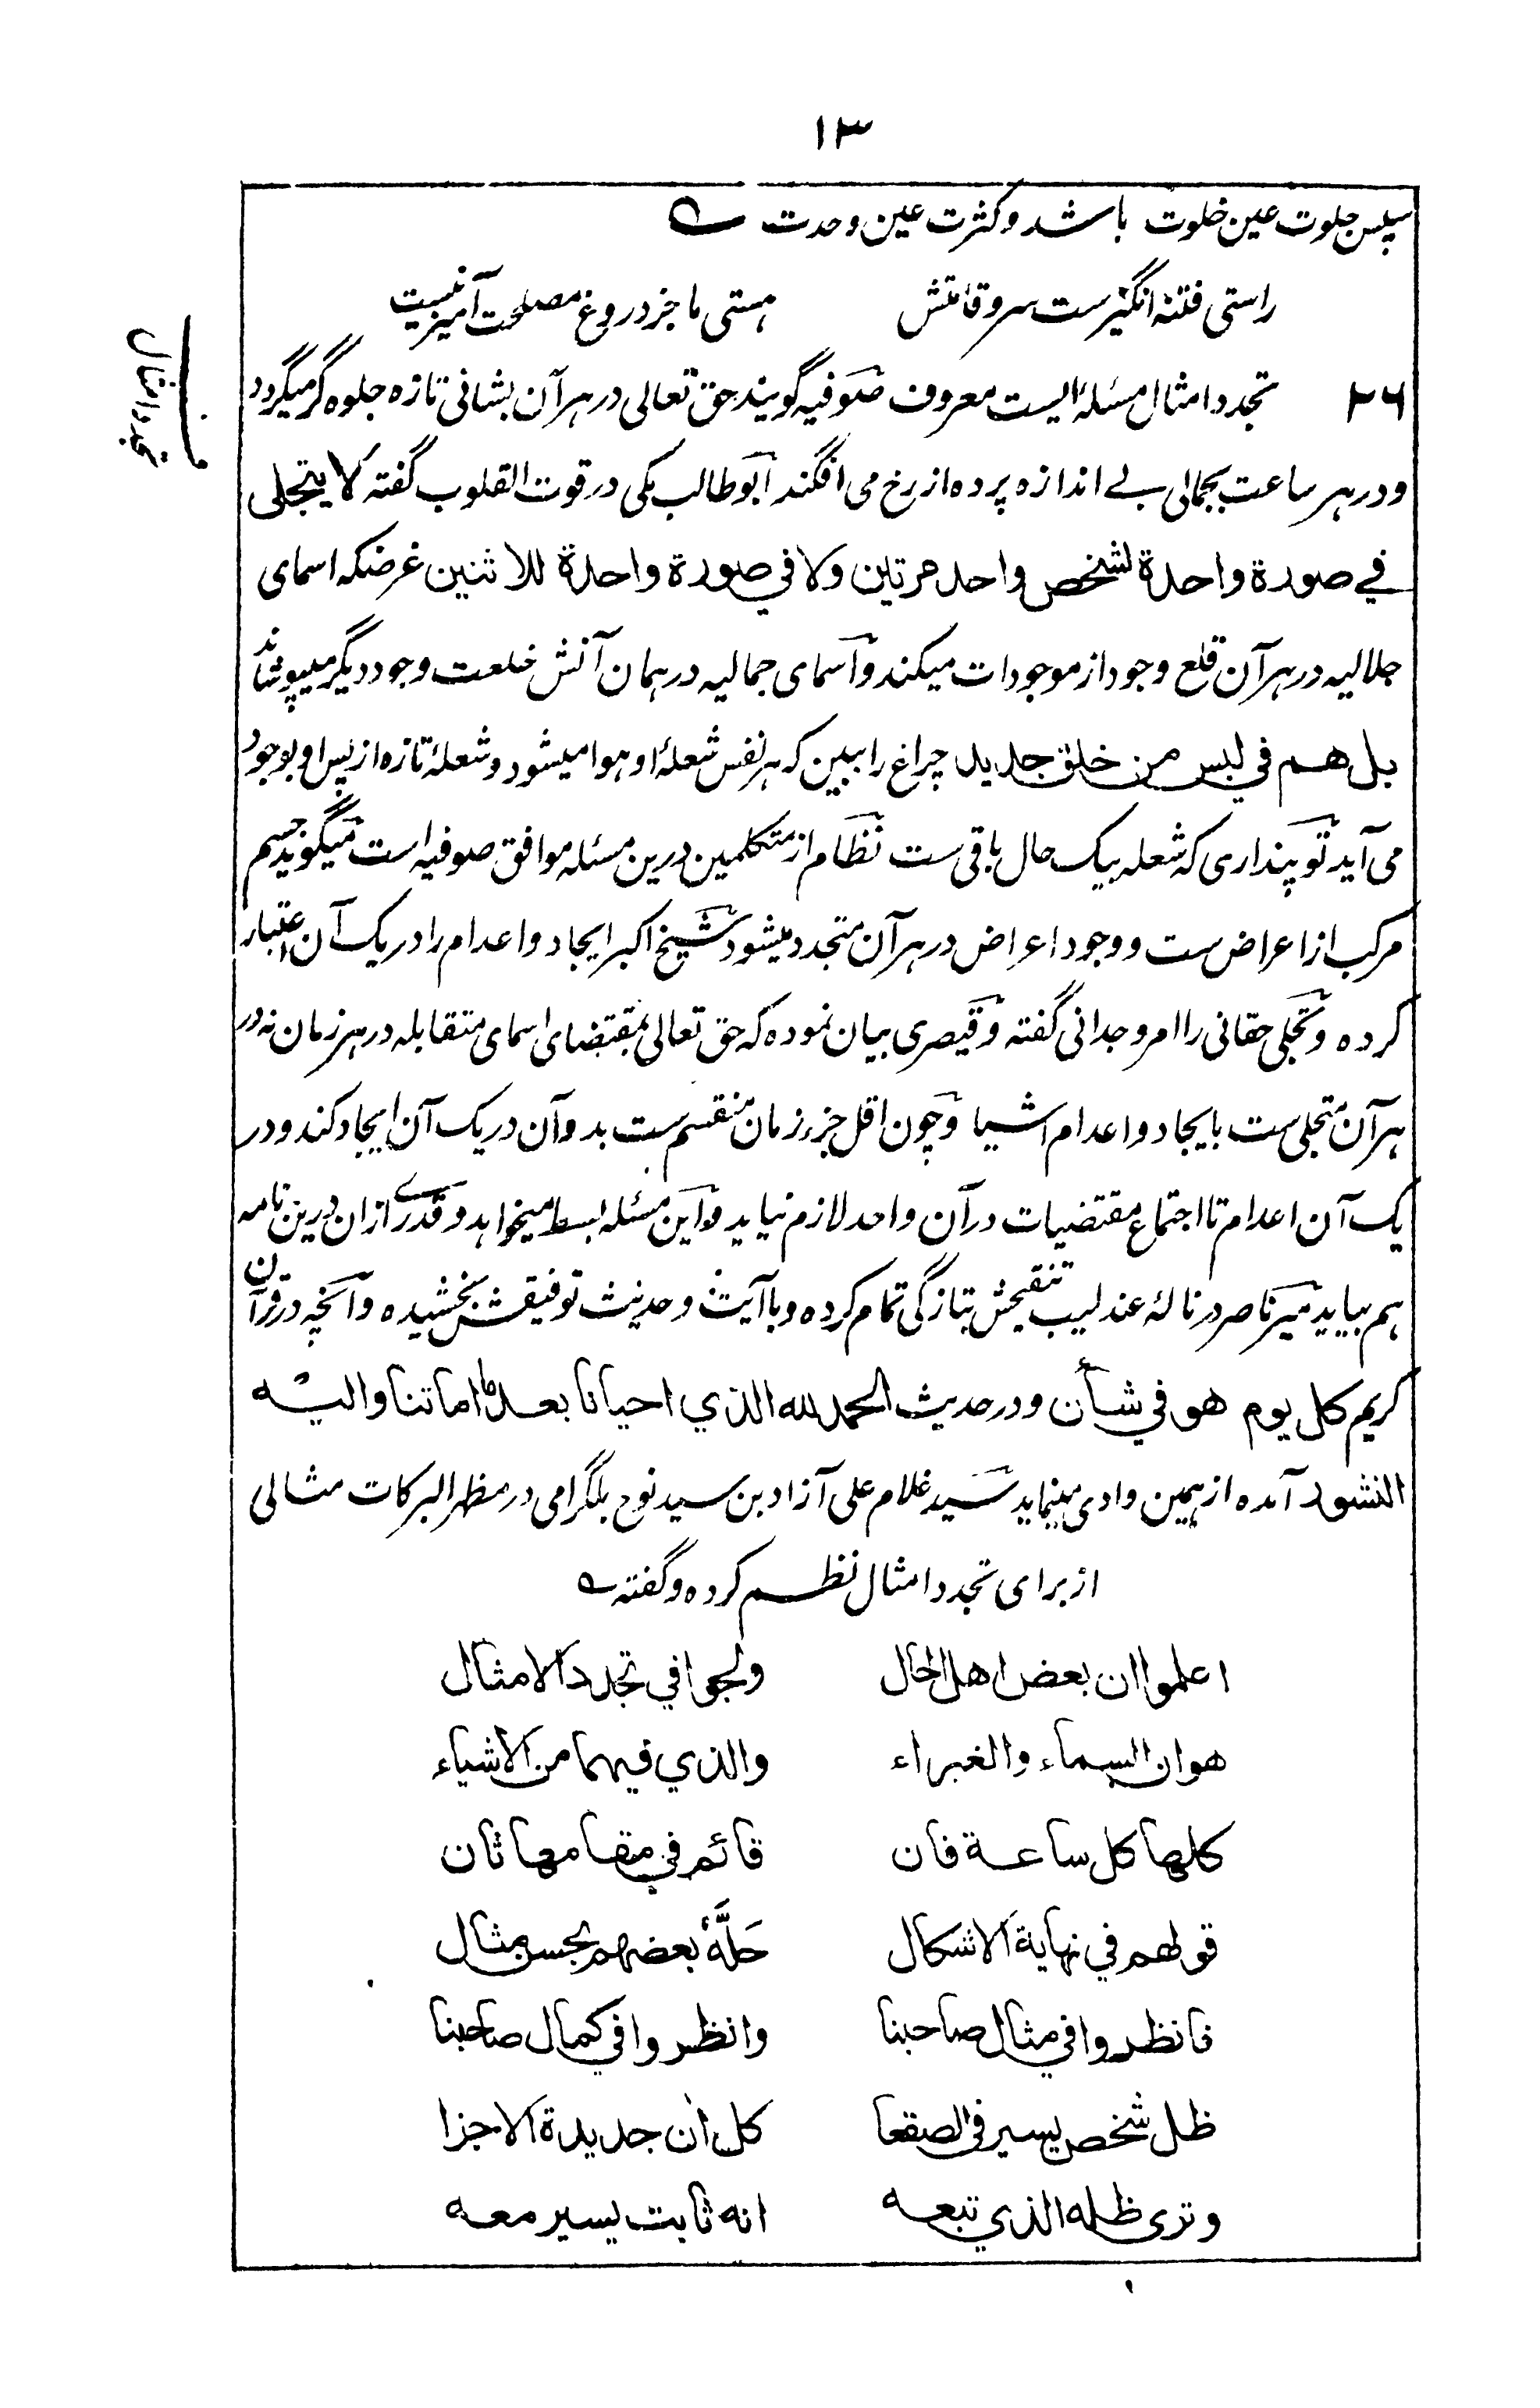 ۱۳
سپس جلوت عین خلوت باشد و کثرت عین وحدت ؎
راستی فتنه انگیزست سرو قامتش    هستی ما جز دروغ مصلحت آمیز نیست
تجدد امثال
۲۶ تجدد امثال مسئله ایست معروف صوفیه گویند حق تعالی در هر آن بشانی تازه جلوه گر میگردد
و در هر ساعت بجمالی بے اندازه پرده از رخ می افگند ابو طالب مکی در قوت القلوب گفته لا یتجلی
في صورة واحدة لشخص واحد مرتین ولا في صورة واحدة للاثنین غرضکه اسمای
جلالیه در هر آن قلع وجود از موجودات میکند و اسمای جمالیه در همان آنش خلعت وجود دیگر میپوشاند
بل هم في لبس من خلق جدید چراغ را ببین که هر نفس شعلهٔ او هوا میشود و شعلهٔ تازه از پس او بوجود
می آید تو پنداری که شعله بیک حال باقی ست نظام از متکلمین درین مسئله موافق صوفیه است میگوید جسم
مرکب از اعراض ست و وجود اعراض در هر آن متجدد میشود شیخ اکبر ایجاد و اعدام را در یک آن اعتبار
کرده و تجلی حقانی را امر وجدانی گفته و قیصری بیان نموده که حق تعالی بمقتضای اسمای متقابله در هر زمان نه در
هر آن متجلی ست بایجاد و اعدام اشیا و چون اقل جزء زمان منقسم ست بدو آن در یک آن ایجاد کند و در
یک آن اعدام تا اجتماع مقتضیات در آن واحد لازم نیاید و این مسئله بسط میخواهد و قدرے ازان درین نامه
هم بیاید میر ناصر در نالهٔ عندلیب تنقیحش بتازگی تمام کرده و با آیت و حدیث توفیقش بخشیده و آنچه در قرآن
کریم کل یوم هو في شأن و در حدیث الحمد لله الذي احیانا بعد ما اماتنا والیه
النشور آمده از همین وادی مینماید سید غلام علی آزاد بن سید نوح بلگرامی در مظهر البرکات مثالی
از برای تجدد امثال نظم کرده و گفته ؎
اعلموا ان بعض اهل الحال    ولجوا في تجدد الامثال
هو ان السماء والغبراء    والذي فیهما من الاشیاء
کلها کل ساعة فان    قائم في مقامها ثان
قولهم في نهایة الاشکال    حَلَّهٗ بعضهم بحسن مثال
فانظروا في مثال صاحبنا    وانظروا في کمال صاحبنا
ظل شخص یسیر في الصقعا    کل آن جدیدة الاجزا
وتری ظله الذي تبعه    انه ثابت یسیر معه